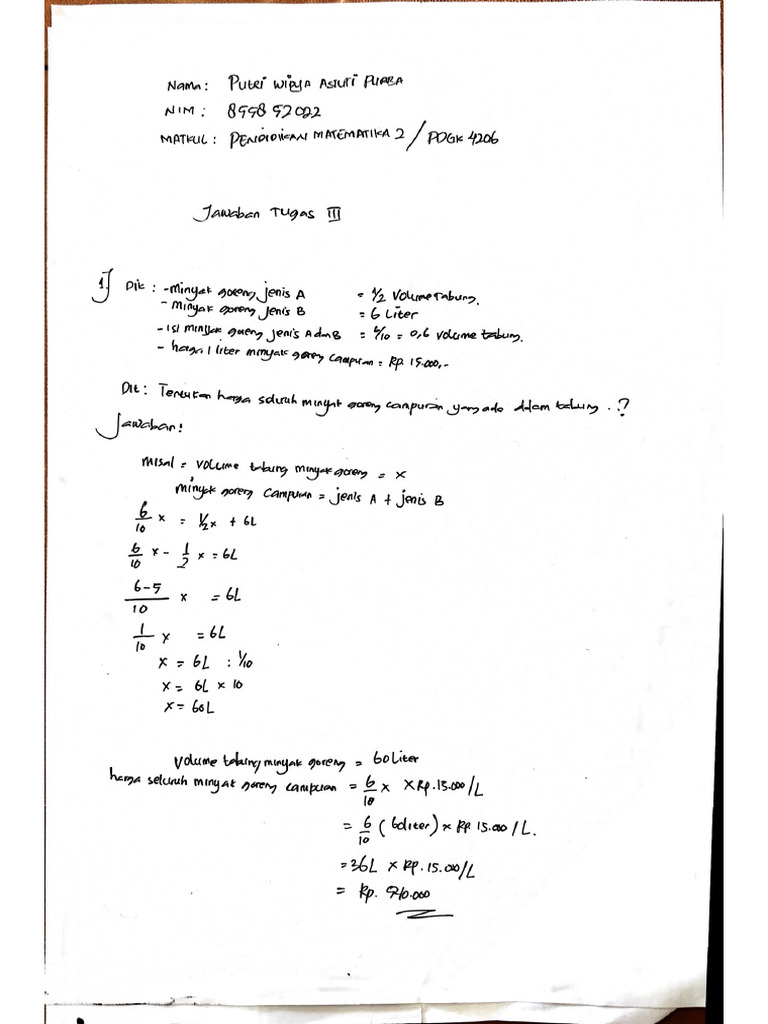 Nama : PUTRI WIDYA ASTUTI
NIM :
MATKUL : PENDIDIKAN MATEMATIKA 2 / PDGK 4206
Jawaban TUGAS III
1.] Dik : - minyak goreng jenis A = 1/2 Volume Tabung.
- minyak goreng jenis B = 6 Liter
- isi minyak goreng jenis A dan B = 6/10 = 0,6 volume tabung.
- harga 1 liter minyak goreng campuran = Rp. 15.000,-
Dit : Tentukan harga seluruh minyak goreng campuran yang ada dalam tabung . ?
Jawaban !
misal = volume tabung minyak goreng = x
minyak goreng campuran = jenis A + jenis B
6/10 x = 1/2 x + 6L
6/10 x - 1/2 x = 6L
6-5/10 x = 6L
1/10 x = 6L
x = 6L : 1/10
x = 6L x 10
x = 60L
Volume tabung minyak goreng = 60 Liter
harga seluruh minyak goreng campuran = 6/10 x x Rp. 15.000 / L
= 6/10 ( 60 liter ) x Rp 15.000 / L.
= 36L x Rp. 15.000 / L
= Rp. 540.000